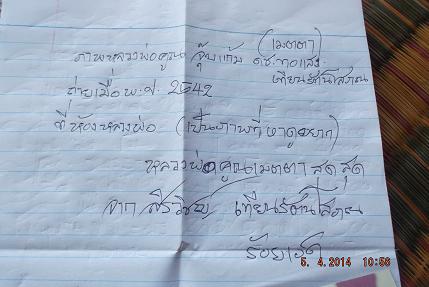 (เมตตา)
ภาพหลวงพ่อคูณ จุ๊บแก้ม ดช.ทอแสง
เทียนรัตนโสภณ
ถ่ายเมื่อ พ.ศ. 2542
ที่ห้องหลวงพ่อ (เป็นภาพที่หาดูยาก)
หลวงพ่อคูณเมตตา สุด สุด
จาก เทียนรัตนโสภณ
ร้อยเอ็ด
5. 4.2014 10:56